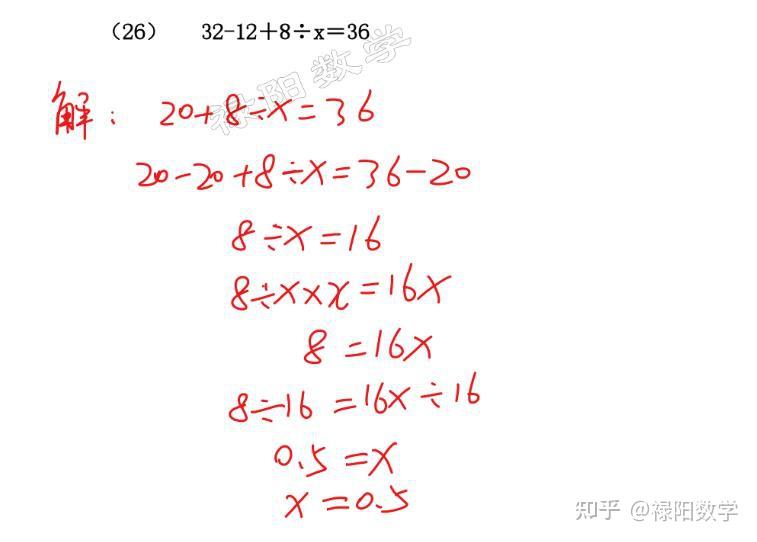 （26） 32-12＋8÷x＝36
禄阳数学
解：20+8÷x=36
20-20+8÷x=36-20
8÷x=16
8÷x×x=16x
8=16x
8÷16=16x÷16
0.5=x
x=0.5
知乎 @禄阳数学